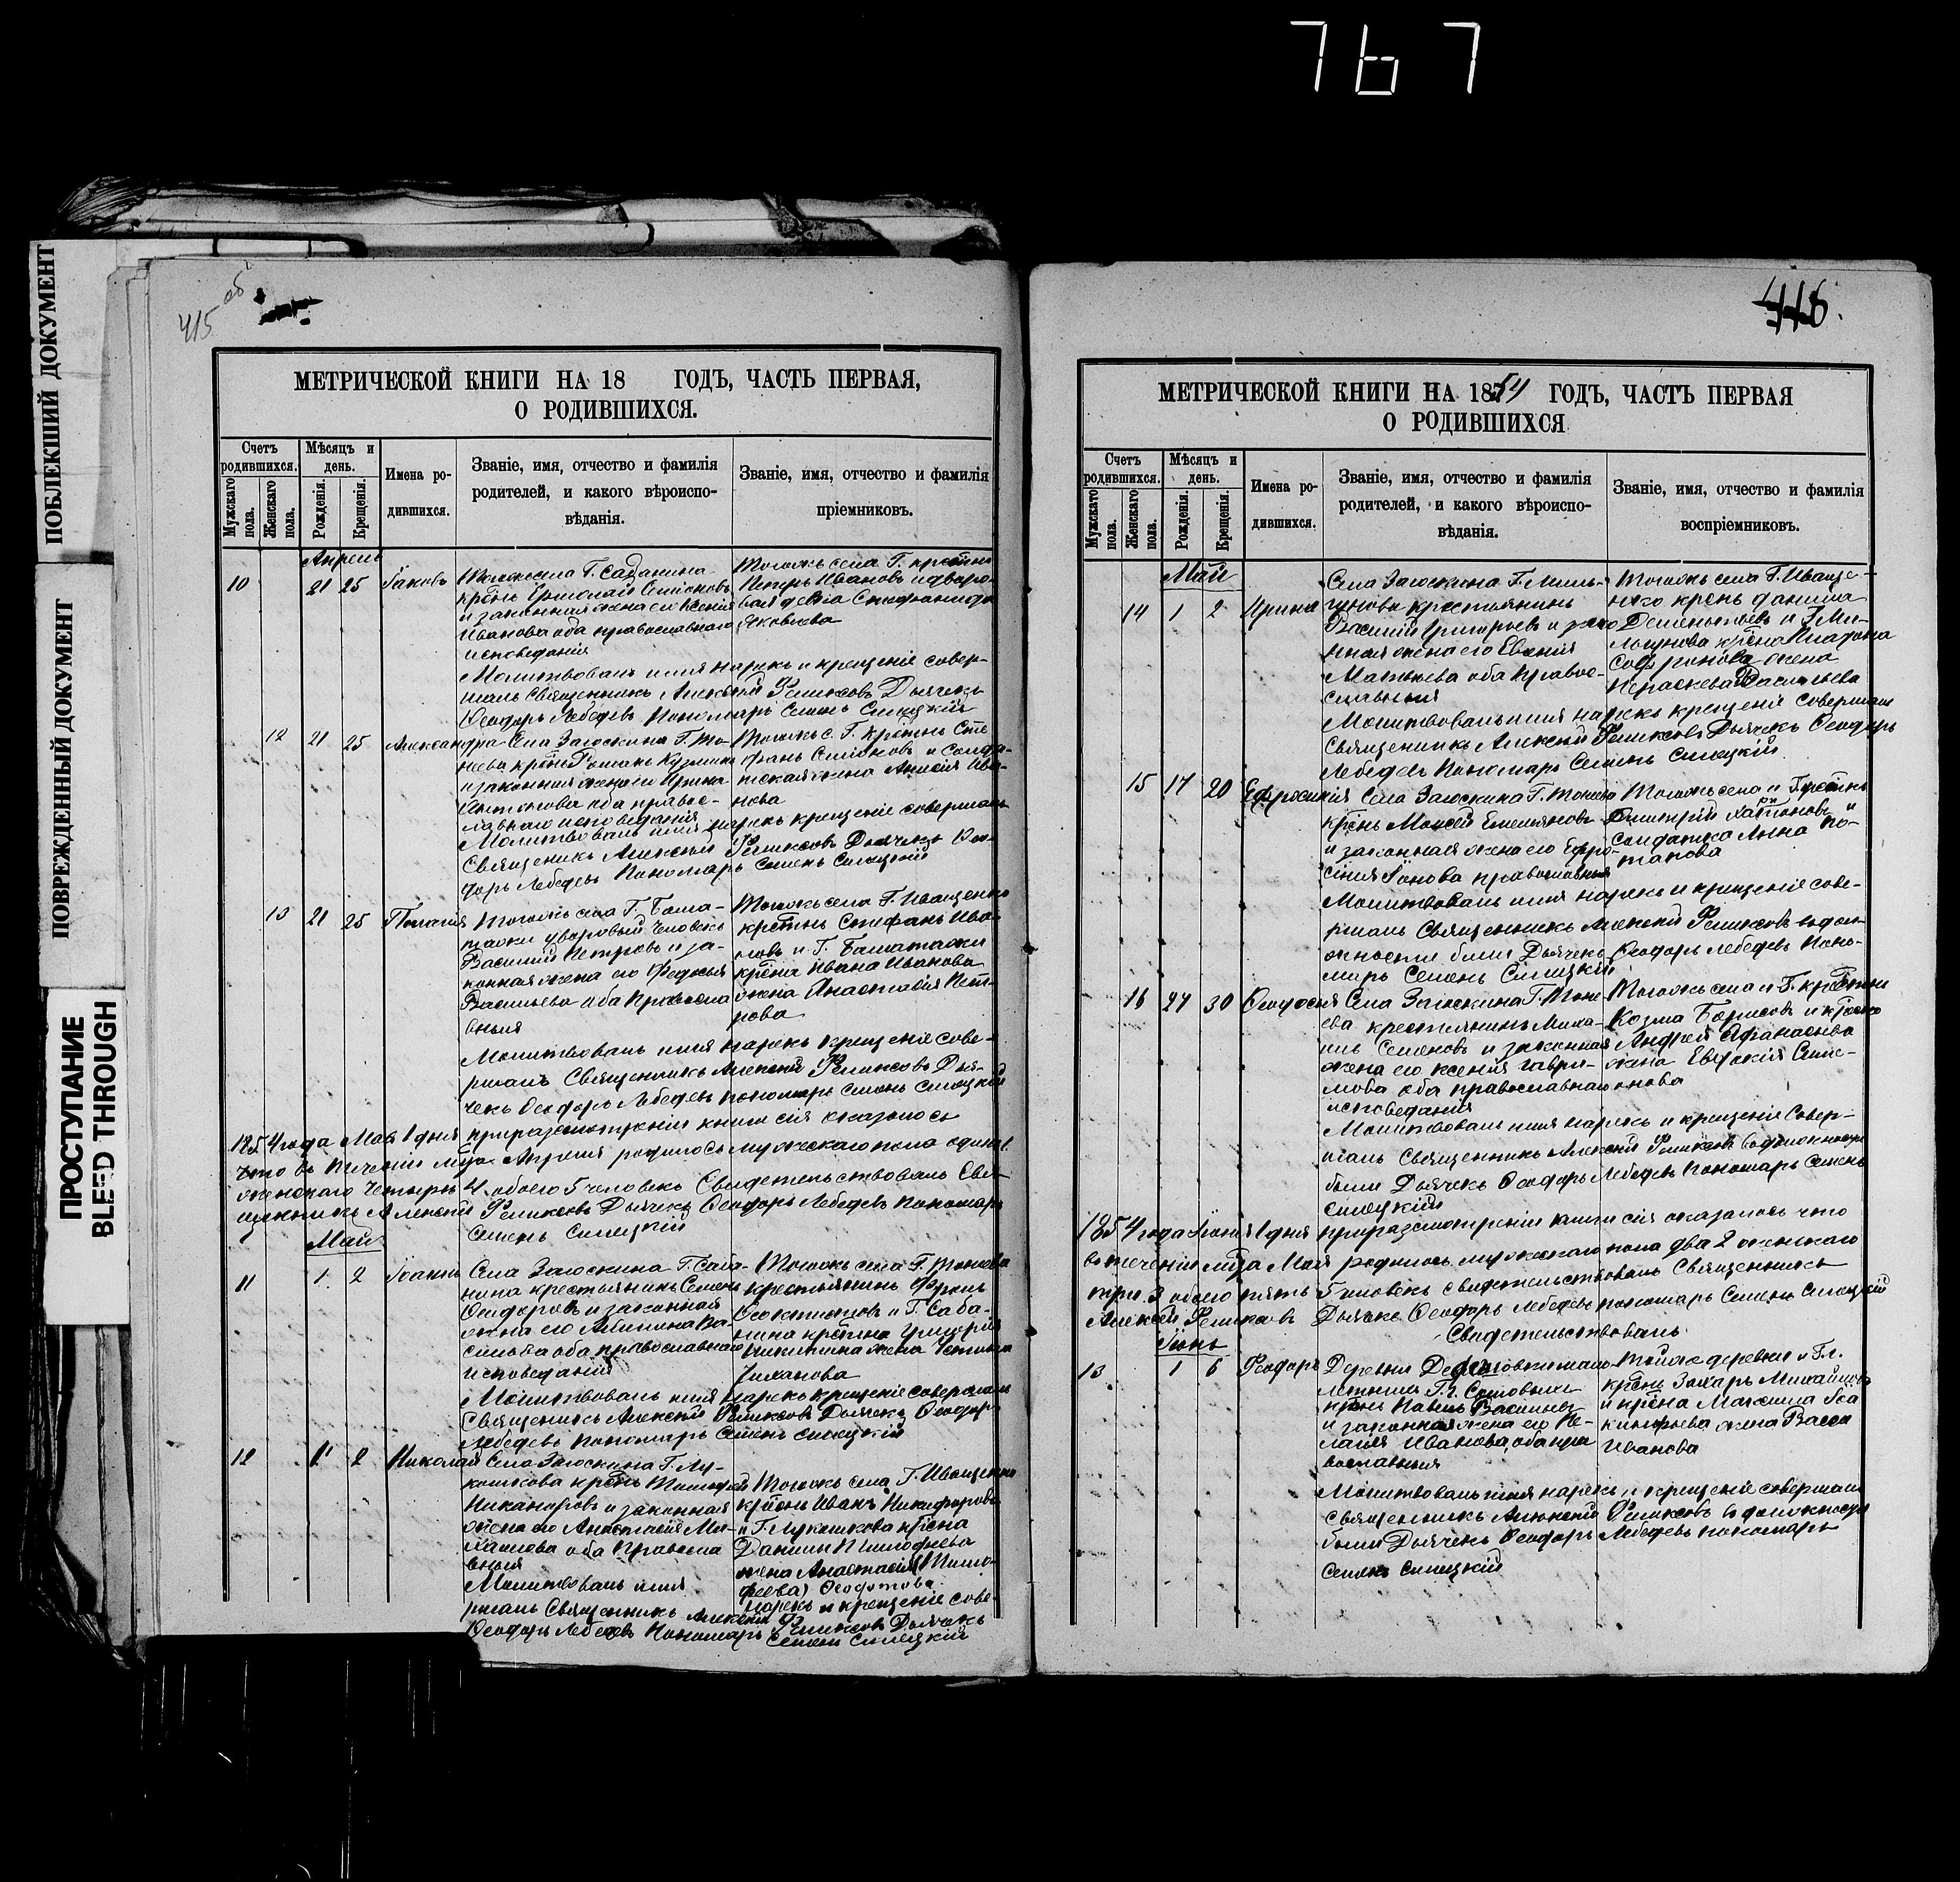 767
ПОБЛЕКШИЙ ДОКУМЕНТ
ПОВРЕЖДЕННЫЙ ДОКУМЕНТ
ПРОСТУПАНИЕ
BLEED THROUGH
415 об
МЕТРИЧЕСКОЙ КНИГИ НА 18 ГОДЪ, ЧАСТЬ ПЕРВАЯ,
О РОДИВШИХСЯ.
Счетъ родившихся.
Мужскаго пола.
Женскаго пола.
Мѣсяцъ и день.
Рожденія.
Крещенія.
Имена ро-
дившихся.
Званіе, имя, отчество и фамилія
родителей, и какого вѣроиспо-
вѣданія.
Званіе, имя, отчество и фамилія
пріемниковъ.
Апрель
10 21 25 Іаковъ
Тогожъ села Г.
крѣнъ Григорій Семіоновъ
и законная жена его Ксенія
Иванова оба православнаго
исповеданія
Тогожъ села Г.
Петръ Ивановъ и дворо-
вая девка Стефанида
Яковлева
Молитвовалъ имя нарекъ и крещеніе совер-
шалъ Священникъ Алексѣй Феликсовъ Дьячекъ
Ѳеодоръ Лебедевъ Пономарь Семенъ Силецкій
12 21 25 Александра
Села Загоскина Г. То-
неева крѣнъ Романъ Кузминъ
и законная жена его Ирина
Антонова оба правос-
лавнаго исповедания
Тогожъ с. Г. Сте
фанъ Симоновъ и солда-
тская жена Анисія Ива-
нова
Молитвовалъ имя нарекъ крещеніе совершалъ
Священикъ Алексѣй Феликсовъ Дьячекъ Ѳео-
доръ Лебедевъ Пономарь Семенъ Силецкій
13 21 25 Пелагия
Тогожъ села Г. Баша-
маки дворовый человекъ
Василий Петровъ и за-
конная жена его Федосья
Васильева оба правосла
вныя
Тогожъ села Г. Иващенко
Стефанъ Ива-
новъ и Г. Башамаки
Ивана Иванова
жена Анастасія Пет-
рова
Молитвовалъ имя нарекъ крещеніе сове-
ршалъ Священникъ Алексѣй Феликсовъ Дья-
чекъ Ѳеодоръ Лебедевъ пономарь Семенъ Силецкій
1854 года Мая 1 дня приразсмотреніи книги сія оказалось
что въ теченіи мца Апреля родилось мужскаго пола одинъ 1.
женскаго четыри 4. обоего 5 человекъ Свидетельствовалъ Свя-
щенникъ Алексѣй Феликсовъ Дьячекъ Ѳеодоръ Лебедевъ Пономарь
Семенъ Силецкій
Май
11 1. 2 Іоаннъ
Села Загоскина Г. Саба-
нина крестьянинъ Семенъ
Ѳеодоровъ и законная
жена его Акилина Ва-
сильева оба православнаго
исповеданія
Тогожъ села Г. Тонеева
крестьянинъ Фролъ
и Г. Саба-
нина Григорія
Никитина жена Устинья
Молитвовалъ имя нарекъ крещеніе совершалъ
Священикъ Алексѣй Феликсовъ Дьячекъ Ѳеодоръ
Лебедевъ пономарь Семенъ Силецкій
12 1 2 Николай
Села Загоскина Г. Лу-
кошкова крѣнъ Тимофей
Никаноровъ и законная
жена его Анастасия Ми-
хайлова оба правосла
вныя
Тогожъ села Г. Иващенко
Иванъ Никифоровъ
и Г. Лукошкова
Данилы Тимофеева
жена Анастасія (Тимо-
феева) Ѳеодотова
Молитвовалъ имя нарекъ и крещеніе сове-
ршалъ Священникъ Алексѣй Феликсовъ Дьячекъ
Ѳеодоръ Лебедевъ Пономарь Семенъ Силецкій
416.
МЕТРИЧЕСКОЙ КНИГИ НА 1854 ГОДЪ, ЧАСТЬ ПЕРВАЯ
О РОДИВШИХСЯ
Счетъ родившихся.
Мужскаго пола.
Женскаго пола.
Мѣсяцъ и день.
Рожденія.
Крещенія.
Имена ро-
дившихся.
Званіе, имя, отчество и фамилія
родителей, и какого вѣроиспо-
вѣданія.
Званіе, имя, отчество и фамилія
воспріемниковъ.
Май
14 1 2 Ирина
Села Загоскина Г. Мель-
гунова крестьянинъ
Василий Григорьевъ и зако
нная жена его Евгения
Матвѣева оба правос-
славныя
Тогожъ села Г. Иваще-
нко крѣнъ Данила
Дементьевъ и Г. Ме-
льгунова Платона
Софронова жена
Параскева Васильева
Молитвовалъ имя нарекъ крещеніе совершалъ
Священникъ Алексѣй Феликсовъ Дьячекъ Ѳеодоръ
Лебедевъ Пономарь Семенъ Силецкій
15 17 20 Ефросинія
Села Загоскина Г. Тонеева
крѣнъ Моисей Емельяновъ
и законная жена его Ефро-
синія Іонова православныя
Тогожъ села и Г.
Димитрій Харионовъ и
солдатка Анна По-
тапова
Молитвовалъ имя нарекъ и крещеніе сове-
ршалъ Священникъ Алексѣй Феликсовъ въ дол-
жности были Дьячекъ Ѳеодоръ Лебедевъ Поно-
марь Семенъ Силецкій
16 27 30 Ѳеодосия
Села Загоскина Г. Тоне-
ева крестьянинъ Миха-
илъ Семеновъ и законная
жена его Ксения Гаври-
лова оба православнаго
исповеданія
Тогожъ села и Г.
Козма Борисовъ и
Андрея Афанасьева
жена Евдокия Симе-
онова
Молитвовалъ имя нарекъ и крещеніе Совер-
шалъ Священникъ Алексѣй Феликсовъ въ должности
были Дьячекъ Ѳеодоръ Лебедевъ Пономарь Семенъ
Силецкій
1854 года Іюня 1 дня приразсмотреніи книги сія оказалось что
втеченіи мца Мая родилось мужскаго пола два 2 женскаго
три 3 обоего пять 5 человекъ свидетельствовалъ Священникъ
Алексѣй Феликсовъ Дьячекъ Ѳеодоръ Лебедевъ пономарь Семенъ Силецкій
Свидетельствовалъ
Іюнь
13 1 6 Феодоръ
Деревни
крѣнъ Павелъ Васильевъ
и законная жена его Пе-
лагия Иванова оба пра
вославныя
Тойже деревни и Г.
крѣнъ Захаръ Михайловъ
и Максима
жена Васса
Иванова
Молитвовалъ имя нарекъ и крещеніе совершалъ
Священникъ Алексѣй Феликсовъ въ должности
были Дьячекъ Ѳеодоръ Лебедевъ пономарь
Семенъ Силецкій